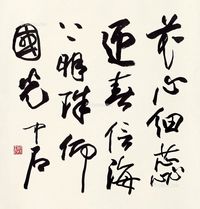 花心细蕊
迎春信海
上明珠仰
國光 中石